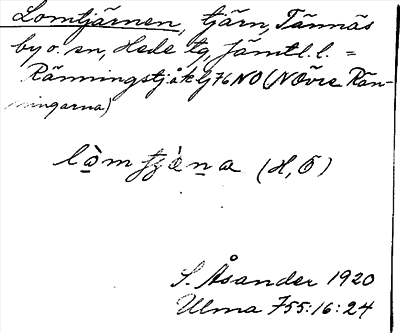 Lomtjärnen, tjärn, Tännäs
by o. sn, Hede tg, Jämtl. l. =
Ränningstj. åk Ly 76 NO (NOvre Rän-
ningarna)
lo̱mtjä̀ṉa (H, Ö)
S. Åsander 1920
Ulma 755:16:24